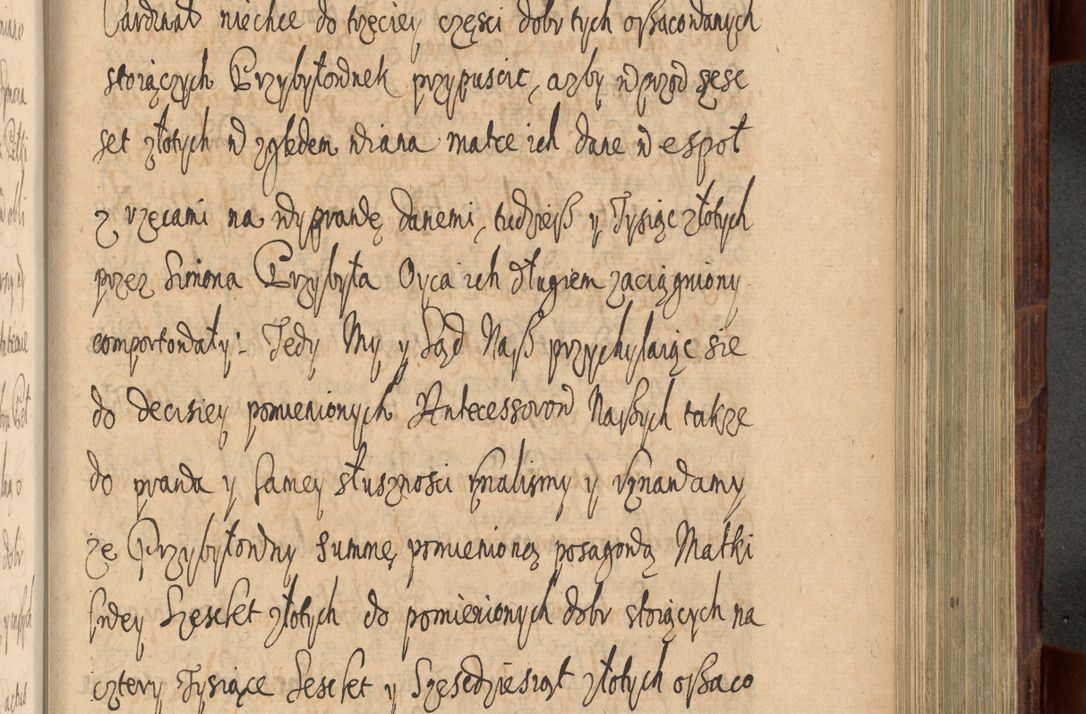 Cardinał niechce do trzeciey części dobr tych oszacowanych
stoiących Przybyłownek przypuscic, azby wprzod sęse
set złotych w zględem wiana matce ich dane w espoł
z rzęcami na wyprawdę danemi, tudzieß y Tysiąc złotych
przez Simona Przybyła Oyca ich długiem zaciągniony
comportowały: Tedy My y Sąd Naß przychylaiąc sie
do decisiey pomienionych Antecessorow Naßych takze
do prawa y samey słusznosci uznalismy y uznawamy
ze Przybyłowny summę pomienioną posagową Matki
swey Szescset złotych do pomienionych dobr stoiących na
cztery Tysiące Sescset y Szescdziesiąt złotych oszaco